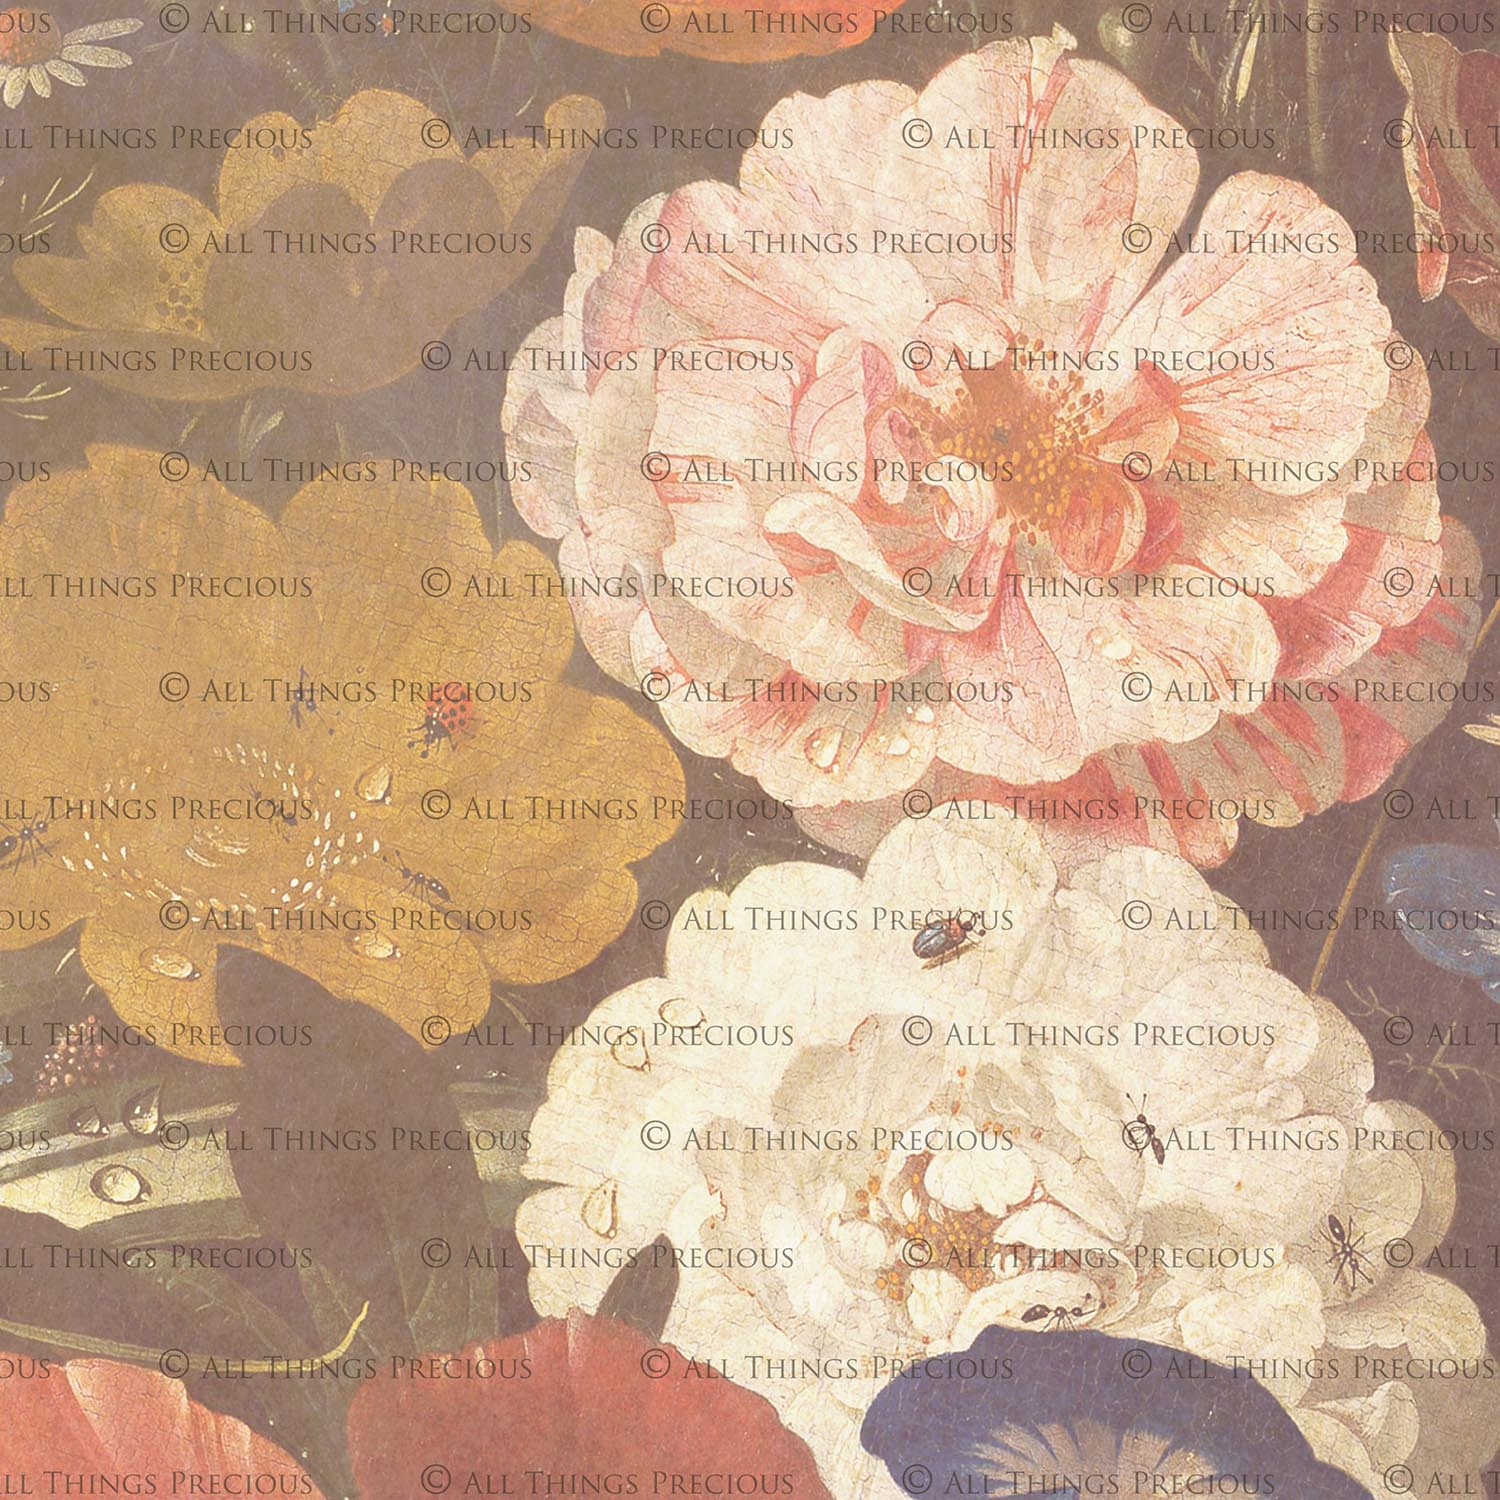 OUS © ALL THINGS PRECIOUS © ALL THINGS PRECIOUS © ALL THINGS PRECIOUS
ALL THINGS PRECIOUS © ALL THINGS PRECIOUS © ALL THINGS PRECIOUS © ALL TH
OUS © ALL THINGS PRECIOUS © ALL THINGS PRECIOUS © ALL THINGS PRECIOUS
ALL THINGS PRECIOUS © ALL THINGS PRECIOUS © ALL THINGS PRECIOUS © ALL TH
OUS © ALL THINGS PRECIOUS © ALL THINGS PRECIOUS © ALL THINGS PRECIOUS
ALL THINGS PRECIOUS © ALL THINGS PRECIOUS © ALL THINGS PRECIOUS © ALL TH
OUS © ALL THINGS PRECIOUS © ALL THINGS PRECIOUS © ALL THINGS PRECIOUS
ALL THINGS PRECIOUS © ALL THINGS PRECIOUS © ALL THINGS PRECIOUS © ALL TH
OUS © ALL THINGS PRECIOUS © ALL THINGS PRECIOUS © ALL THINGS PRECIOUS
ALL THINGS PRECIOUS © ALL THINGS PRECIOUS © ALL THINGS PRECIOUS © ALL TH
OUS © ALL THINGS PRECIOUS © ALL THINGS PRECIOUS © ALL THINGS PRECIOUS
ALL THINGS PRECIOUS © ALL THINGS PRECIOUS © ALL THINGS PRECIOUS © ALL TH
OUS © ALL THINGS PRECIOUS © ALL THINGS PRECIOUS © ALL THINGS PRECIOUS
ALL THINGS PRECIOUS © ALL THINGS PRECIOUS © ALL THINGS PRECIOUS © ALL TH